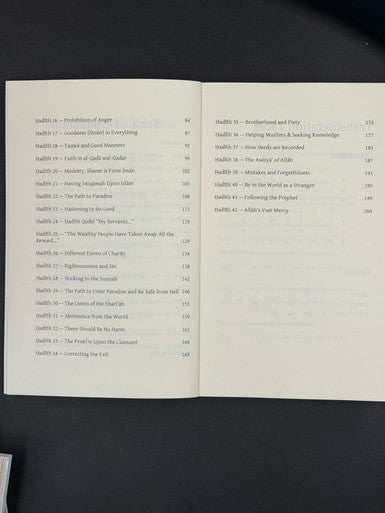 Ḥadīth 16 — Prohibition of Anger 84
Ḥadīth 17 — Goodness (Iḥsān) in Everything 87
Ḥadīth 18 — Taqwā and Good Manners 91
Ḥadīth 19 — Faith in al-Qaḍā wal-Qadar 95
Ḥadīth 20 — Modesty, Shame is From Īmān 102
Ḥadīth 21 — Having Istiqāmah Upon Islām 105
Ḥadīth 22 — The Path to Paradise 108
Ḥadīth 23 — Hastening to do Good 113
Ḥadīth 24 — Ḥadīth Qudsī "My Servants..." 119
Ḥadīth 25 — "The Wealthy People Have Taken Away All the
Reward..." 129
Ḥadīth 26 — Different Forms of Charity 134
Ḥadīth 27 — Righteousness and Sin 138
Ḥadīth 28 — Sticking to the Sunnah 142
Ḥadīth 29 — The Path to Enter Paradise and Be Safe from Hell 146
Ḥadīth 30 — The Limits of the Sharī'ah
Ḥadīth 31 — Abstinence from the World 159
Ḥadīth 32 — There Should Be No Harm 162
Ḥadīth 33 — The Proof is Upon the Claimant
Ḥadīth 34 — Correcting the Evil 169
Ḥadīth 35 — Brotherhood and Piety 172
Ḥadīth 36 — Helping Muslims & Seeking Knowledge 177
Ḥadīth 37 — How Deeds are Recorded 183
Ḥadīth 38 — The Awliyā' of Allāh 187
Ḥadīth 39 — Mistakes and Forgetfulness 191
Ḥadīth 40 — Be in the World as a Stranger 195
Ḥadīth 41 — Following the Prophet 199
Ḥadīth 42 — Allāh's Vast Mercy 204